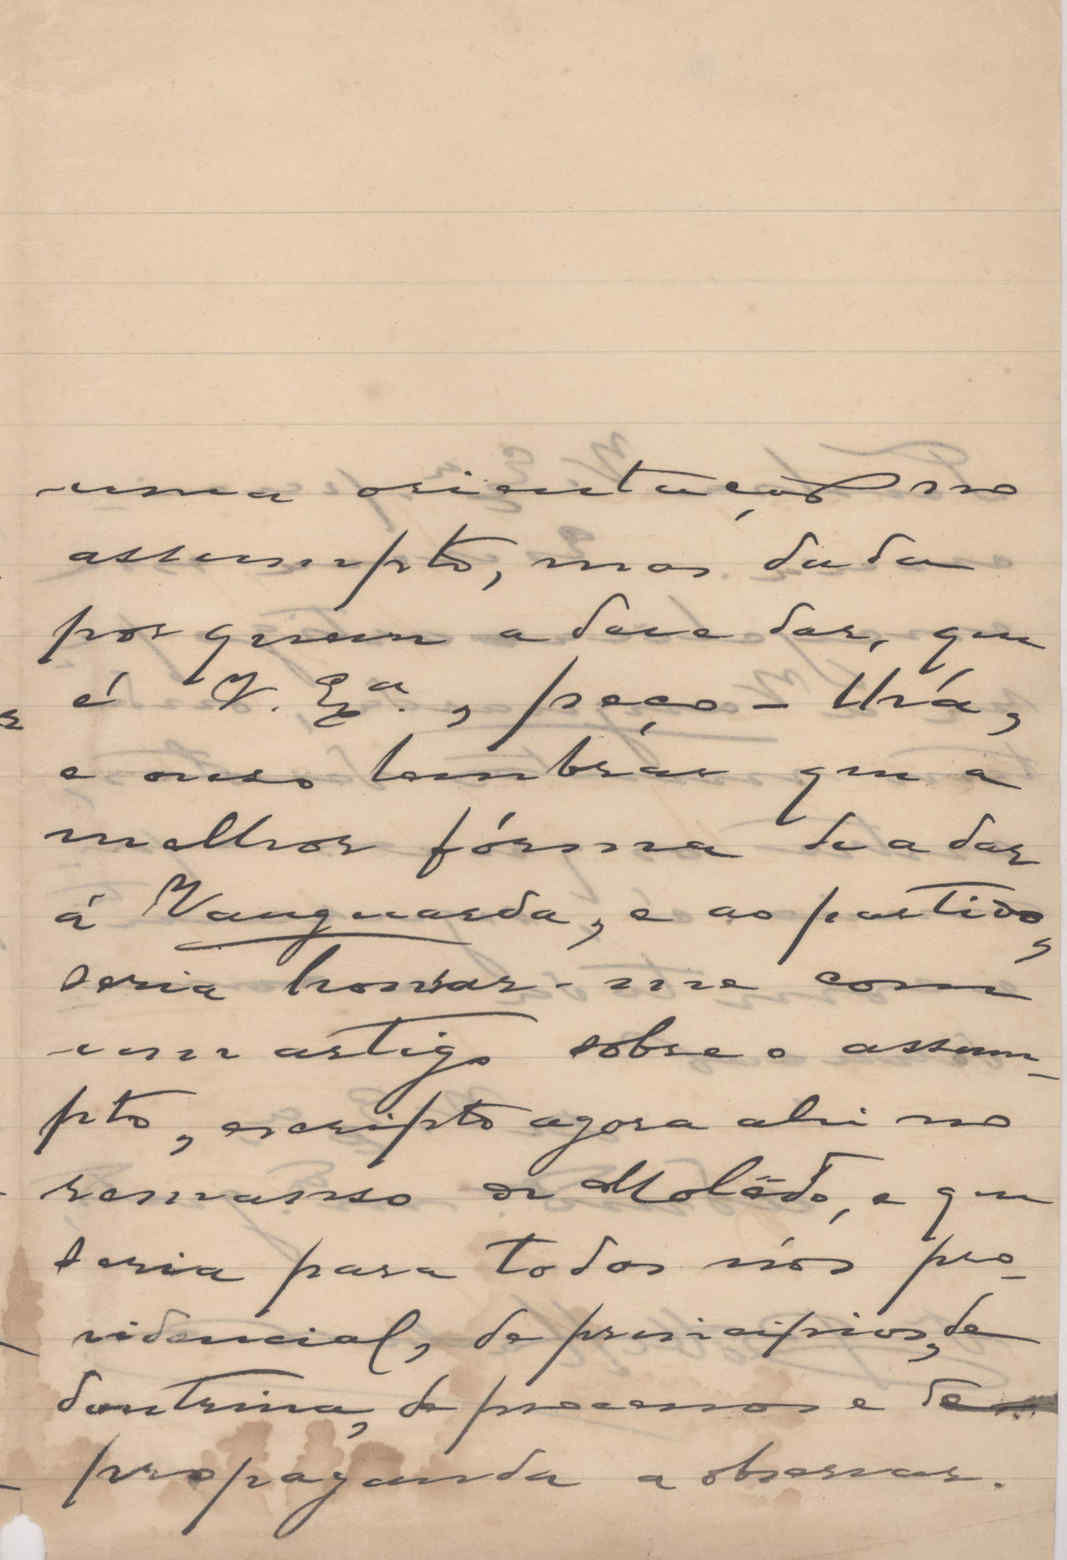 uma orientação no
assumpto, mas dada
por quem a deve dar, que
é V. Exª., peço-lh'á,
e ouso lembrár que a
melhor fórma de a dar
á Vanguarda, e ao partido,
seria honrar-me com
um artigo sobre o assum-
pto, escripto agora ahi no
remanso de Molêdo, e que
seria para todos nós pro-
videncial, de principios, de
doutrina, de processos e de
propaganda a observar.